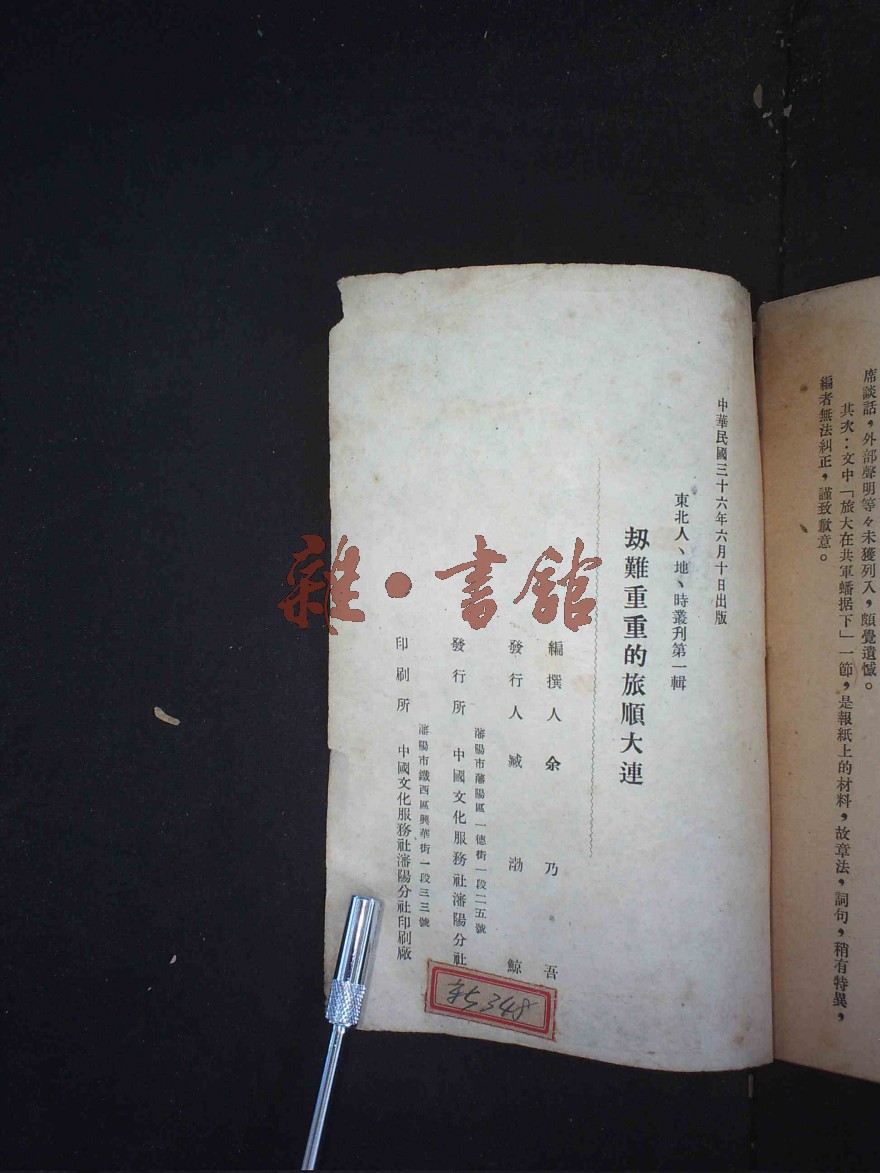 席談話，外部聲明等々未獲列入，頗覺遺憾。
其次：文中「旅大在共軍蟠据下」一節，是報紙上的材料，故章法，詞句，稍有特異，
編者無法糾正，謹致歉意。
中華民國三十六年六月十日出版
東北人、地、時叢刊第一輯
刼難重重的旅順大連
編撰人 余乃吾
發行人 臧渤鯨
瀋陽市瀋陽區一德街一段二五號
發行所 中國文化服務社瀋陽分社
瀋陽市鐵西區興華街一段三三號
印刷所 中國文化服務社瀋陽分社印刷廠
5348
雜·書館